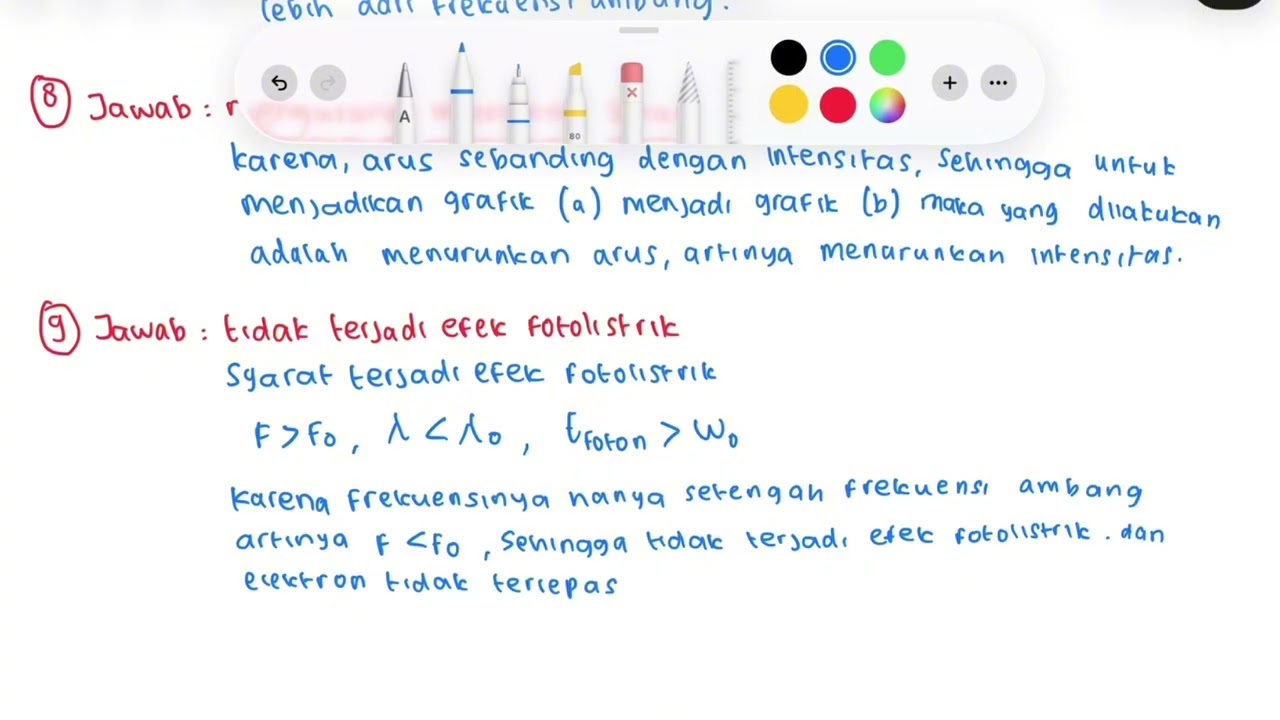 lebih dari frekuensi ambang.
8 Jawab :
karena, arus sebanding dengan intensitas, sehingga untuk
menjadikan grafik (a) menjadi grafik (b) maka yang dilakukan
adalah menurunkan arus, artinya menurunkan intensitas.
9 Jawab : tidak terjadi efek fotolistrik
Syarat terjadi efek fotolistrik
F > Fo , λ < λo , Efoton > Wo
karena frekuensinya hanya setengah frekuensi ambang
artinya F < Fo , sehingga tidak terjadi efek fotolistrik . dan
elektron tidak terlepas
A
80